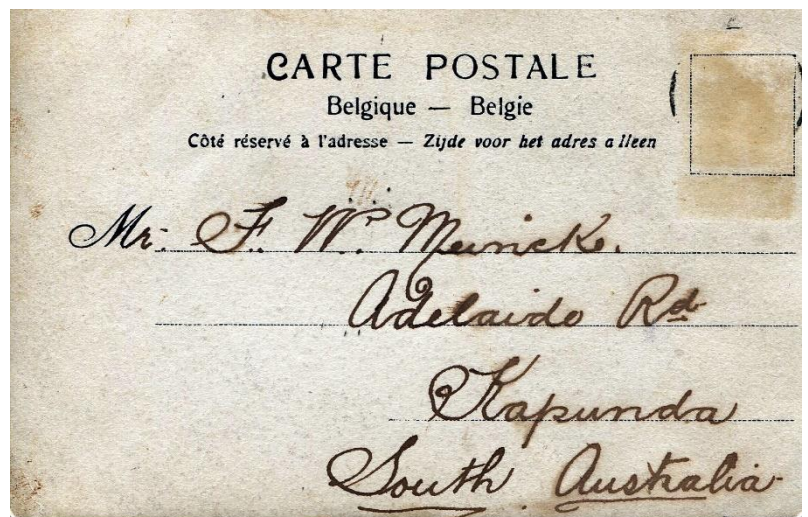 CARTE POSTALE
Belgique — Belgie
Côté réservé à l'adresse — Zijde voor het adres alleen
Mr. F. W. Meinicke.
Adelaide Rd
Kapunda
South Australia